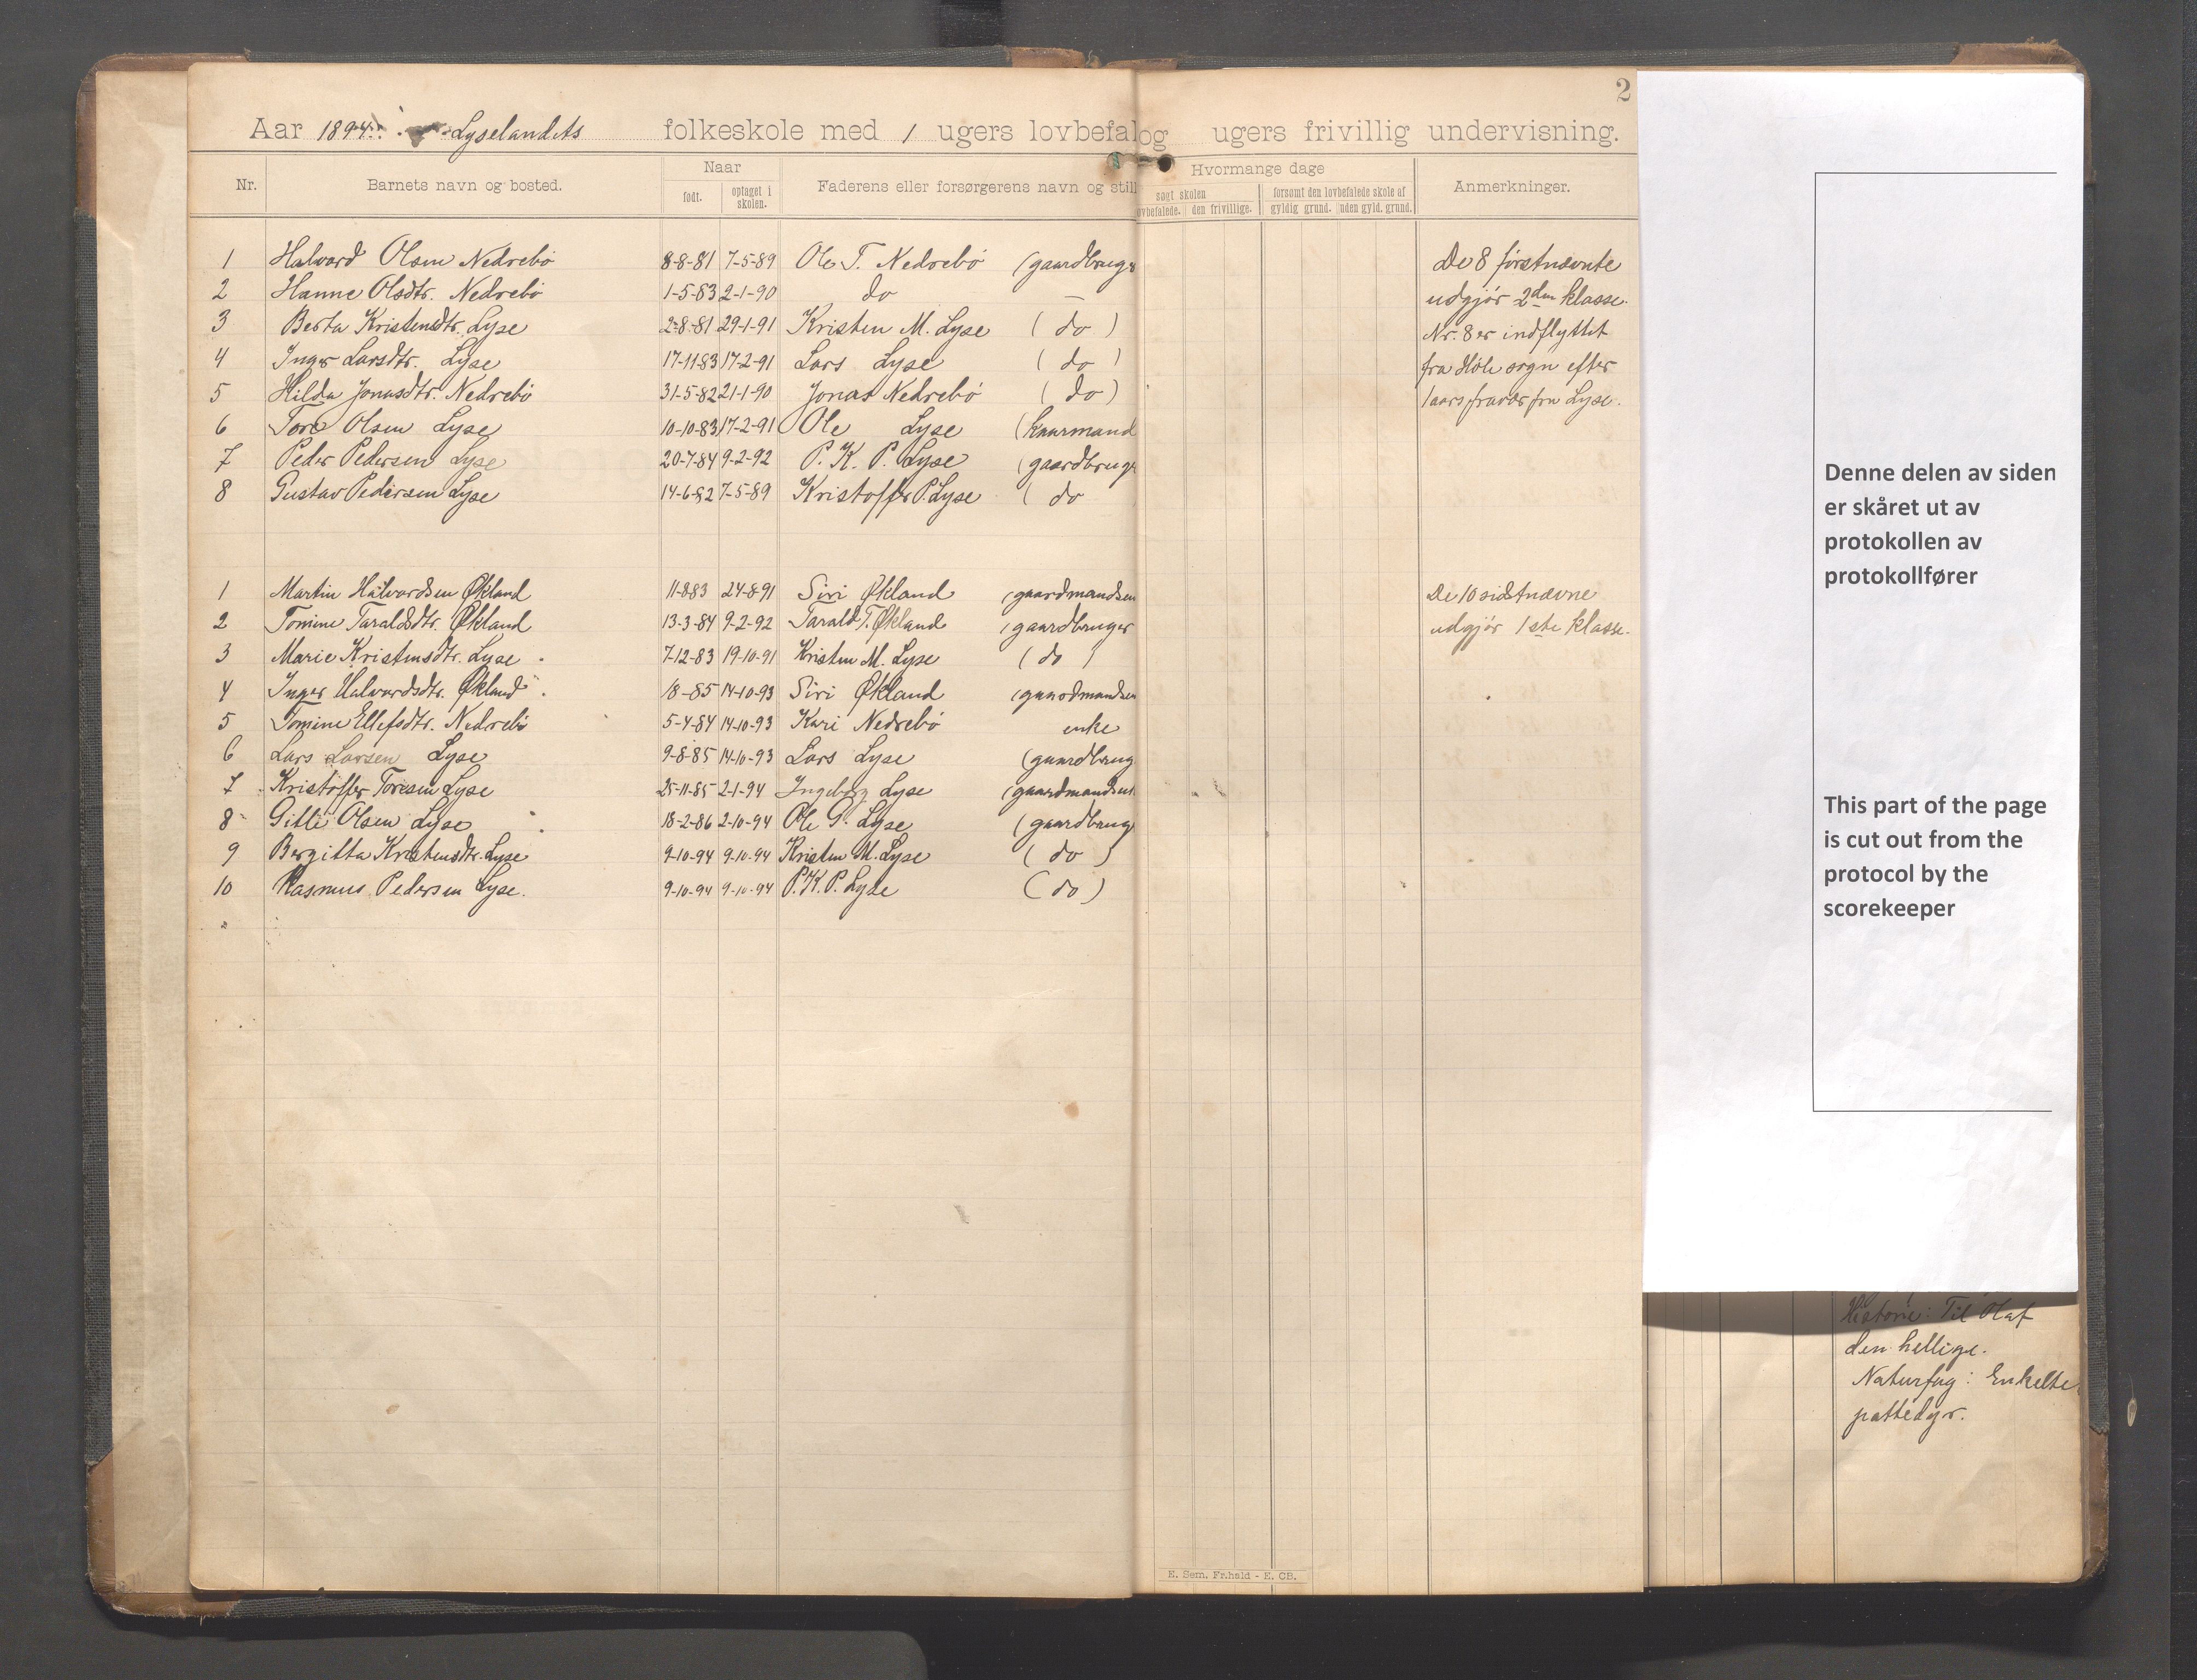 2
Aar 1894. Lyselandets folkeskole med 1 ugers lovbefal og ugers frivillig undervisning.
Nr. Barnets navn og bosted. Naar født. optaget i skolen. Faderens eller forsørgerens navn og still Hvormange dage søgt skolen ovbefalede. den frivillige. forsømt den lovbefalede skole af gyldig grund. uden gyld. grund. Anmerkninger.
1 Halvard Olsen Nedrebö 8-8-81 7-5-89 Ole T. Nedrebö (gaardbruger De 8 förstnævnte
2 Hanne Olsdtr. Nedrebö 1-5-83 2-1-90 do — udgjör 2den klasse.
3 Berta Kristensdtr. Lyse 2-8-81 29-1-91 Kristen M. Lyse (do) Nr. 8 er indflyttet
4 Inger Larsdtr. Lyse 17-11-83 17-2-91 Lars Lyse (do) fra Höle sogn efter
5 Hilda Jonasdtr. Nedrebö 31-5-82 21-1-90 Jonas Nedrebö (do) 1 aars fravær fra Lyse.
6 Tore Olsen Lyse 10-10-83 17-2-91 Ole Lyse (kaarmand
7 Peder Pedersen Lyse 20-7-84 9-2-92 P. K. P. Lyse (gaardbruge
8 Gustav Pedersen Lyse 14-6-82 7-5-89 Kristoffer P. Lyse (do
1 Martin Halvardsen Økland 11-8-83 24-8-91 Siri Økland (gaardmandsen De 10 sidstnævne
2 Tomine Taraldsdtr. Økland 13-3-84 9-2-92 Tarald T. Økland (gaardbruger udgjör 1ste klasse.
3 Marie Kristensdtr. Lyse 7-12-83 19-10-91 Kristen M. Lyse (do)
4 Inger Halvardsdtr. Økland 18-85 14-10-93 Siri Økland (gaardmandsen
5 Tomine Ellefsdtr. Nedrebö 5-4-84 14-10-93 Kari Nedrebö enke
6 Lars Larsen Lyse 9-8-85 14-10-93 Lars Lyse (gaardbrug
7 Kristoffer Toresen Lyse 25-11-85 2-1-94 Ingeborg Lyse (gaardmandsen
8 Gitle Olsen Lyse 18-2-86 2-10-94 Ole G. Lyse (gaardbrug
9 Bergitta Kristensdtr. Lyse 9-10-94 9-10-94 Kristen M. Lyse (do)
10 Rasmus Pedersen Lyse. 9-10-94 9-10-94 P. K. P. Lyse (do)
E. Sem. Fr.hald - E. CB.
Denne delen av siden
er skåret ut av
protokollen av
protokollfører
This part of the page
is cut out from the
protocol by the
scorekeeper
Historie: Til Olaf
den hellige.
Naturfag: Enkelte
pattedyr.